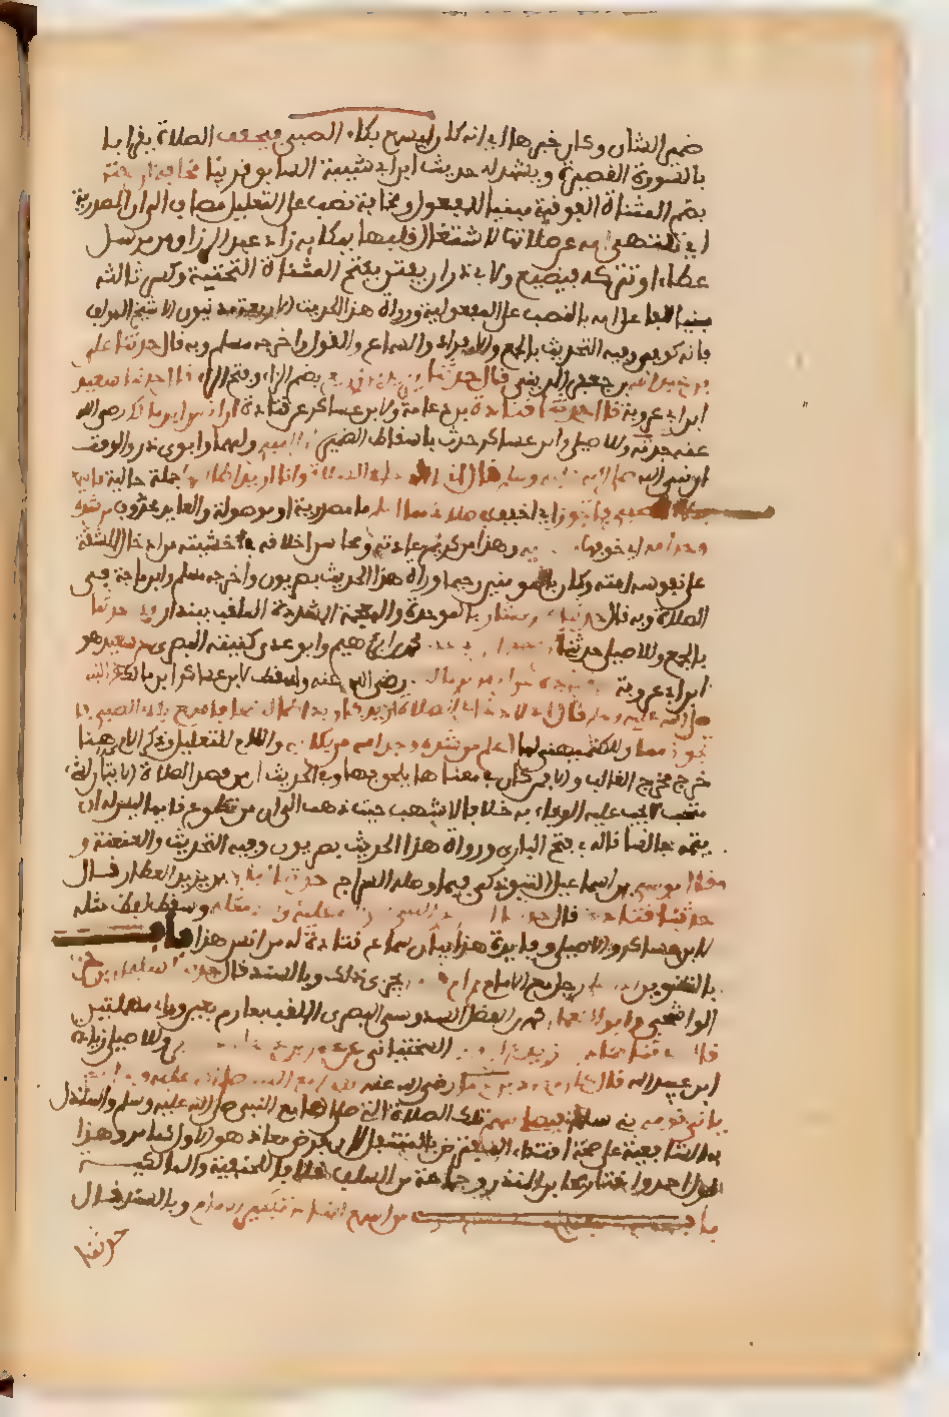 ضمير الشان وكان خبرها اي انه كان ليسمع بكاء الصبي فيخفف الصلاة يقرا بها
بالسورة القصيرة ويشهد له حديث ابن ابي شيبة السابق قريبا مخافة ان
بضم المثناة الفوقية مبنيا للمفعول ومخافة نصب على التعليل مضاف الى ان المصدرية
اي تلتهي امه عن صلاتها لاشتغال قلبها ببكايه زاد عبد الرزاق من مرسل
عطاء او تتركه فيضيع ولابي ذر ان يفتن بفتح المثناة التحتية وكسر ثالثه
مبنيا للفاعل امه بالنصب على المفعولية ورواة هذا الحديث الاربعة مدنيون الا شيخ المولف
فانه كوفي وفيه التحديث بالجمع والافراد والسماع والقول واخرجه مسلم وبه قال حدثنا علي
بن عبد الله بن جعفر المديني قال حدثنا يزيد بن زريع بضم الزاي وفتح الراء قال حدثنا سعيد
ابن ابي عروبة قال حدثنا قتادة بن دعامة ولابن عساكر عن قتادة ان انس ابن مالك رضي الله
عنه حدثه وللاصيلي وابن عساكر حدث باسقاط الضمير ولهما ولابوي ذر والوقت
ان نبي الله صلى الله عليه وسلم قال اني لادخل في الصلاة وانا اريد اطالتها جملة حالية فاسمع
بكاء الصبي فاتجوز اي اخفف في صلاتي مما اعلم ما مصدرية او موصولة والعايد محذوف من شدة
وجد امه اي حزنها وهذا من كريم عادته ومحاسن اخلاقه خشيته من ادخال المشقة
على نفوس امته وكان بالمومنين رحيما ورواة هذا الحديث بصريون واخرجه مسلم وابن ماجة في
الصلاة وبه قال حدثنا محمد بن بشار بالموحدة والمعجمة المشددة الملقب ببندار قال حدثنا
بالجمع وللاصيلي حدثني محمد ابن ابراهيم وابو عدي كنيته البصري عن سعيد هو
ابن ابي عروبة عن قتادة عن انس بن مالك رضي الله عنه ولفظ لابن عساكر ابن مالك عن النبي
صلى الله عليه وسلم قال اني لادخل في الصلاة فاريد اطالتها فاسمع بكاء الصبي فا
تجوز مما وللكشميهني لما اعلم من شدة وجد امه من بكايه واللام للتعليل وذكر الام هنا
خرج مخرج الغالب والا فمن كان في معناها يلحق بها وفي الحديث ان من قصد الصلاة الاتيان بشيء
مستحب لا يجب عليه الوفاء به خلافا لاشهب حيث ذهب الى ان من تطوع قايما ليس له ان
يتمه جالسا قاله في فتح الباري ورواة هذا الحديث بصريون وفيه التحديث والعنعنة و
وقال موسى بن اسماعيل التبوذكي فيما وصله السراج حدثنا ابان بن يزيد العطار قال
حدثنا قتادة قال حدثنا انس عن النبي صلى الله عليه وسلم مثله وسقط لفظ مثله
لابن عساكر والاصيلي وفايدة هذا بيان سماع قتادة له من انس هذا باب
بالتنوين اذا صلى رجل مع الامام ثم ام قوما يجزي ذلك وبالسند قال حدثنا سليمان بن حرب
الواشحي وابو النعمان محمد بن الفضل السدوسي البصري الملقب بعارم بعين وراء مهملتين
قالا حدثنا حماد بن زيد عن ايوب السختياني عن عمرو بن دينار عن جابر وللاصيلي زيادة
ابن عبد الله قال كان معاذ بن جبل رضي الله عنه يصلي مع النبي صلى الله عليه وسلم ثم
ياتي قومه بني سلمة فيصلي بهم تلك الصلاة التي صلاها مع النبي صلى الله عليه وسلم واستدل
به الشافعية على صحة اقتداء المفترض بالمتنفل لان فرض معاذ هو الاولى كما مر وهذا
قول احمد واختاره ابن المنذر وجماعة من السلف خلافا للحنفية والمالكية
باب من اسمع الناس تكبير الامام وبالسند قال
حدثنا